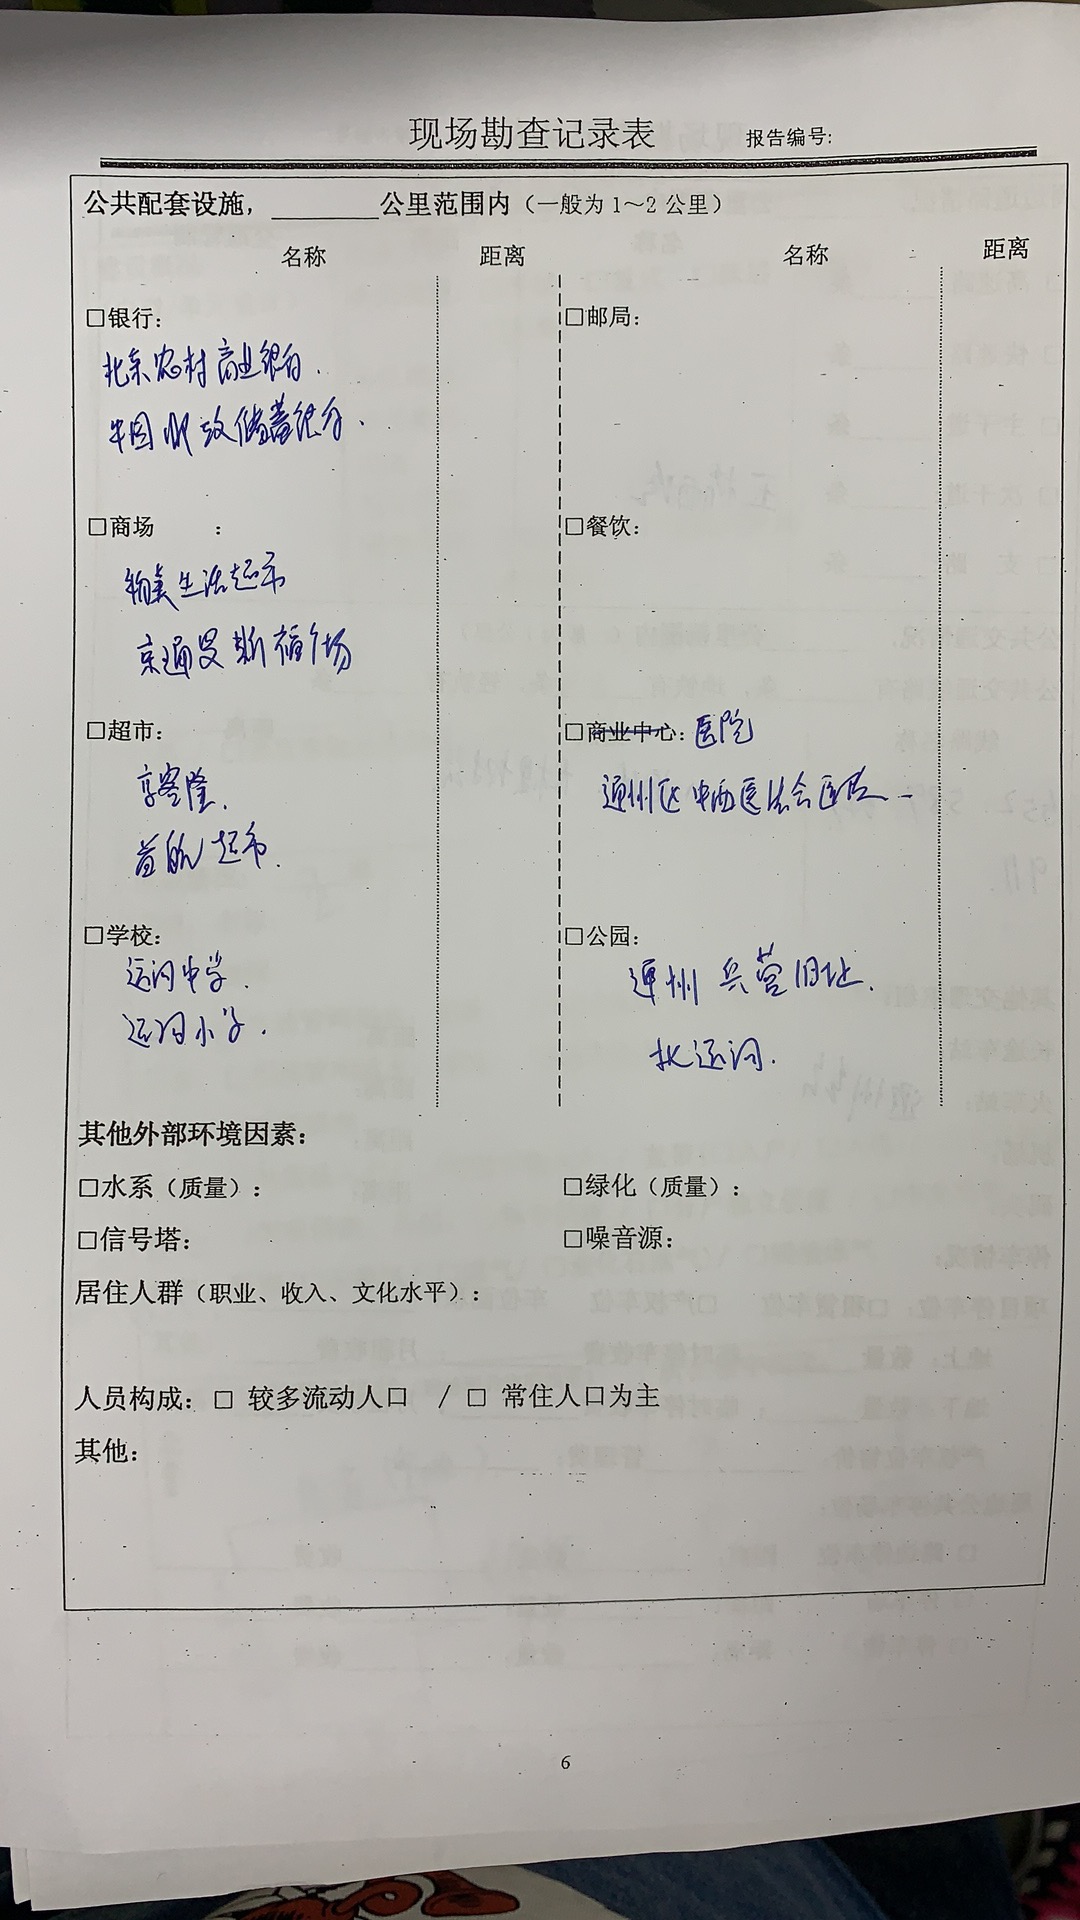 现场勘查记录表 报告编号:
公共配套设施，________公里范围内（一般为1～2公里）
名称 距离 名称 距离
□银行: □邮局:
北京农村商业银行.
中国邮政储蓄银行.
□商场 : □餐饮:
物美生活超市
京通罗斯福广场
□超市: □商业中心: 医院
京客隆.
通州区中西医结合医院
首航超市.
□学校: □公园:
运河中学.
通州兵营旧址.
运河小学.
北运河.
其他外部环境因素:
□水系（质量）: □绿化（质量）:
□信号塔: □噪音源:
居住人群（职业、收入、文化水平）:
人员构成: □ 较多流动人口 / □ 常住人口为主
其他:
6